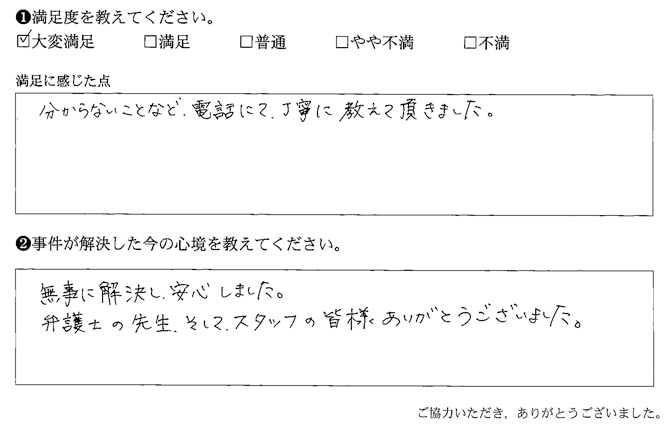 ❶満足度を教えてください。
☑大変満足 □満足 □普通 □やや不満 □不満
満足に感じた点
分からないことなど、電話にて、丁寧に教えて頂きました。
❷事件が解決した今の心境を教えてください。
無事に解決し、安心しました。
弁護士の先生、そして、スタッフの皆様、ありがとうございました。
ご協力いただき、ありがとうございました。